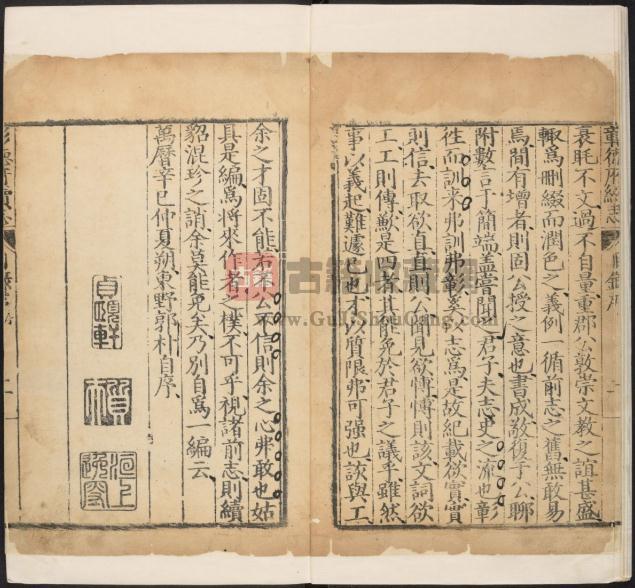 彰德府續志
衰眊不文過不自量重郡公敦崇文教之誼甚盛
輙爲刪綴而潤色之義例一循前志之舊無敢易
焉間有增者則固公授之意也書成敬復于公聊
附數言于簡端蓋嘗聞之君子夫志史之流也彰
徃而訓来弗訓弗彰奚以志爲是故紀載欲實實
則信去取欲直直則公聞見欲愽愽則該文詞欲
工工則傳歉是四者其能免於君子之議乎雖然
事以義起難遽已也才以質限弗可强也該與工
余之才固不能若公不信則余之心弗敢也姑
具是編爲將來作者之樸不可乎視諸前志則續
貂混珍之誚余莫能免矣乃別自爲一編云
萬曆辛巳仲夏朔東野郭朴自序
古籍收藏網
www.GuJiShouCang.com